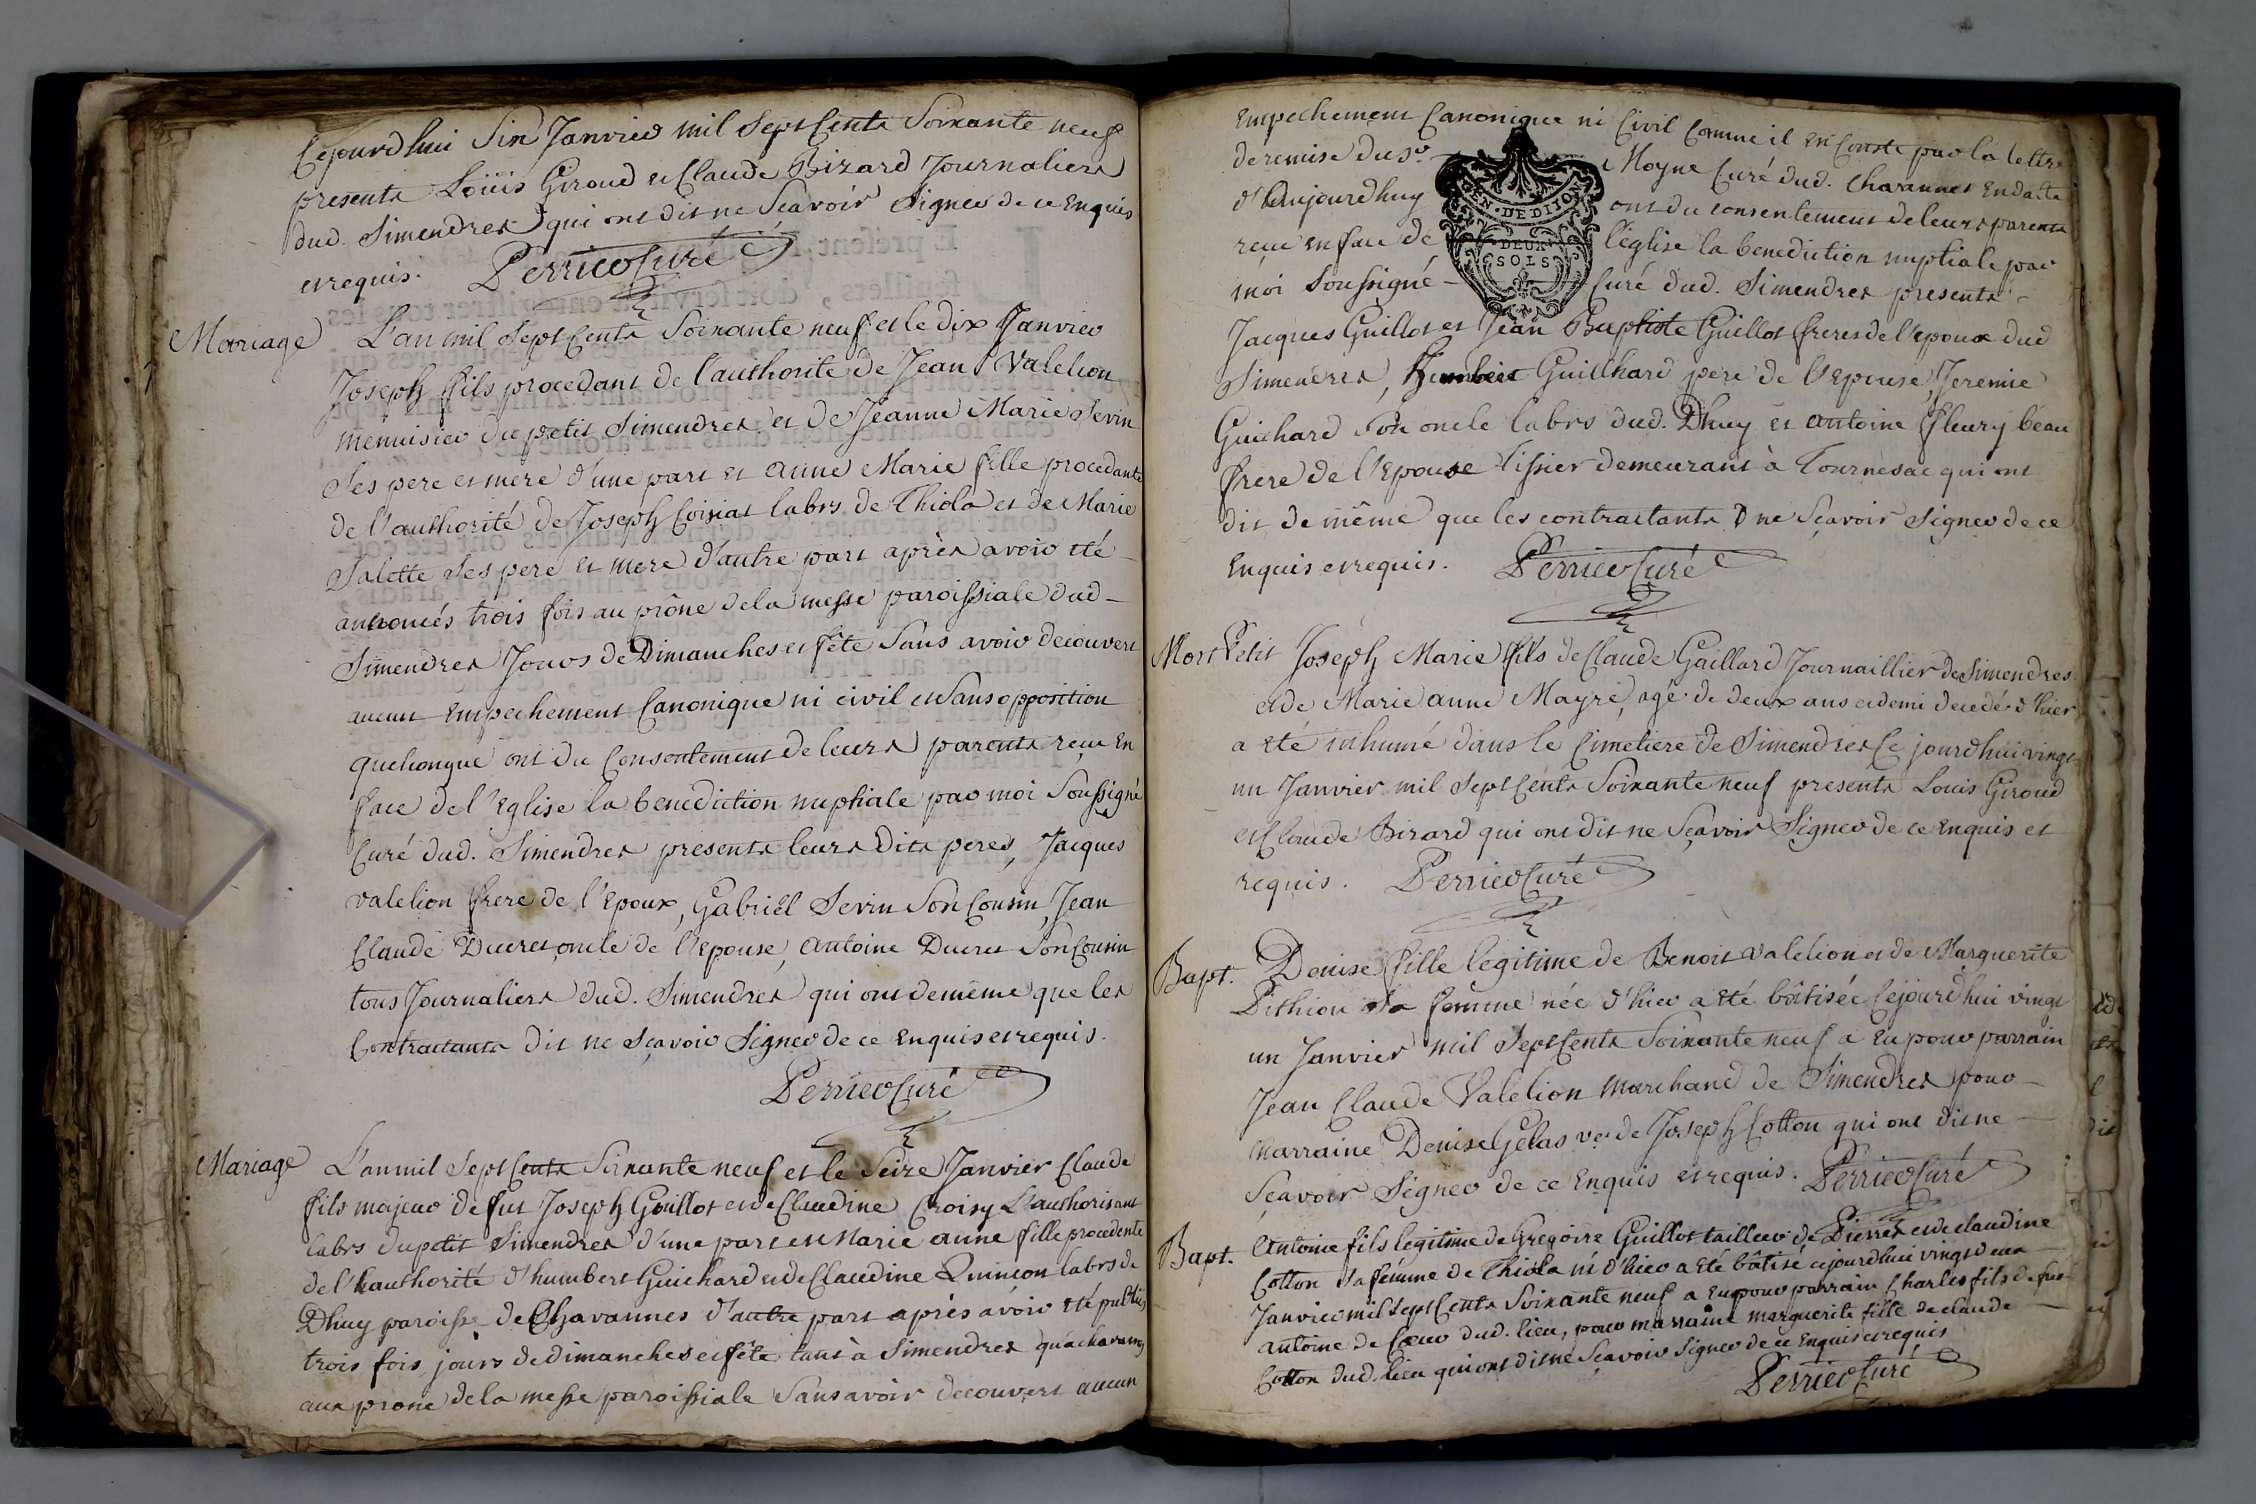 Cejourdhui Six Janvier mil Sept Cents Soixante neuf
presents Loüis Giroud et Claude Bizard Journaliers
dud. Simendres qui ont dit ne Scavoir Signer de ce Enquis
et requis. Perrier Curé
Mariage L'an mil Sept Cents Soixante neuf et le dix Janvier
Joseph fils procedant de l'authorité de Jean Valelion
menuisier du petit Simendres et de Jeanne Marie Sevin
Ses pere et mere d'une part et anne Marie fille procedante
de l'authorité de Joseph Coisiat labrs de Thiola et de Marie
Salette Ses pere et mere d'autre part après avoir eté
annoncés trois fois au prône de la messe paroissiale dud
Simendres Jours de Dimanches et fête Sans avoir decouvert
aucun Empechement Canonique ni civil et Sans opposition
quelconque ont du Consentement de leurs parents reçu En
face de l'Eglise la benediction nuptiale par moi Soussigné
Curé dud. Simendres presents leurs Dits peres, Jacques
valelion frere de l'Epoux, Gabriël Sevin Son Cousin, Jean
Claude Ducret oncle de l'Epouse, antoine Ducret Son Cousin
tous Journaliers dud. Simendres qui ont de même que les
Contractants dit ne Sçavoir Signer de ce Enquis et requis.
Perrier Curé
Mariage L'an mil Sept Cents Soixante neuf et le Seize Janvier Claude
fils majeur de fut Joseph Guillot et de Claudine Croisy L'authorisant
labrs du petit Simendres d'une part et Marie anne fille procedente
de l'hauthorité d'humbert Guichard et de Claudine Quinçon labrs de
Dhuy paroisse de Chavannes d'autre part après avoir eté publiés
trois fois jours de dimanches et fête tant à Simendres qu'a chavannes
aux prone de la messe paroissiale Sans avoir decouvert aucun
Empechement Canonique ni Civil Comme il En Conste par la lettre
de remise du Sr. Moyne Curé dud. Chavannes En datte
d'Aujourdhuy ont du consentement de leurs parents
reçu en face de l'église la benediction nuptiale par
moi Soussigné Curé dud. Simendres presents
GEN. DE DIJON
DEUX
SOLS
Jacques Guillot et Jean Baptiste Guillot freres de l'epoux dud
Simendres, humbert Guilchard pere de l'Epouse, Jeremie
Guichard Son oncle labrs dud. Dhuy et antoine fleury beau
frere de l'Epouse tissier demeurant à Tournesac qui ont
dit de même que les contractants ne Sçavoir Signer de ce
Enquis et requis. Perrier Curé
Mort Petit Joseph Marie fils de Claude Gaillard Journaillier de Simendres
et de Marie anne Mayré, agé de deux ans et demi decedé d'hier
a eté inhumé dans le Cimetiere de Simendres Ce jourdhui vingt
un Janvier mil Sept Cents Soixante neuf presents Louis Giroud
et Claude Bizard qui ont dit ne Sçavoir Signer de ce Enquis et
requis. Perrier Curé
Bapt. Denise fille legitime de Benoit valelion et de Marguerite
Pithion Sa femme née d'hier a Eté bâtisée Cejourdhui vingt
un Janvier mil Sept Cents Soixante neuf a Eu pour parrain
Jean Claude Valelion marchand de Simendres pour
Marraine Denise Gelas ve de Joseph Cotton qui ont dit ne
Sçavoir Signer de ce Enquis et requis. Perrier Curé
Bapt. Antoine fils legitime de Gregoire Guillot tailleur de Pierres et de claudine
Cotton Sa femme de Thiola né d'hier a Eté bâtisé cejourdhui vingt deux
Janvier mil Sept Cents Soixante neuf a Eu pour parrain Charles fils de feu
antoine de Coeur dud. lieu, pour marraine marguerite fille de claude
Cotton dud. lieu qui ont dit ne Sçavoir Signer de ce Enquis et requis
Perrier Curé